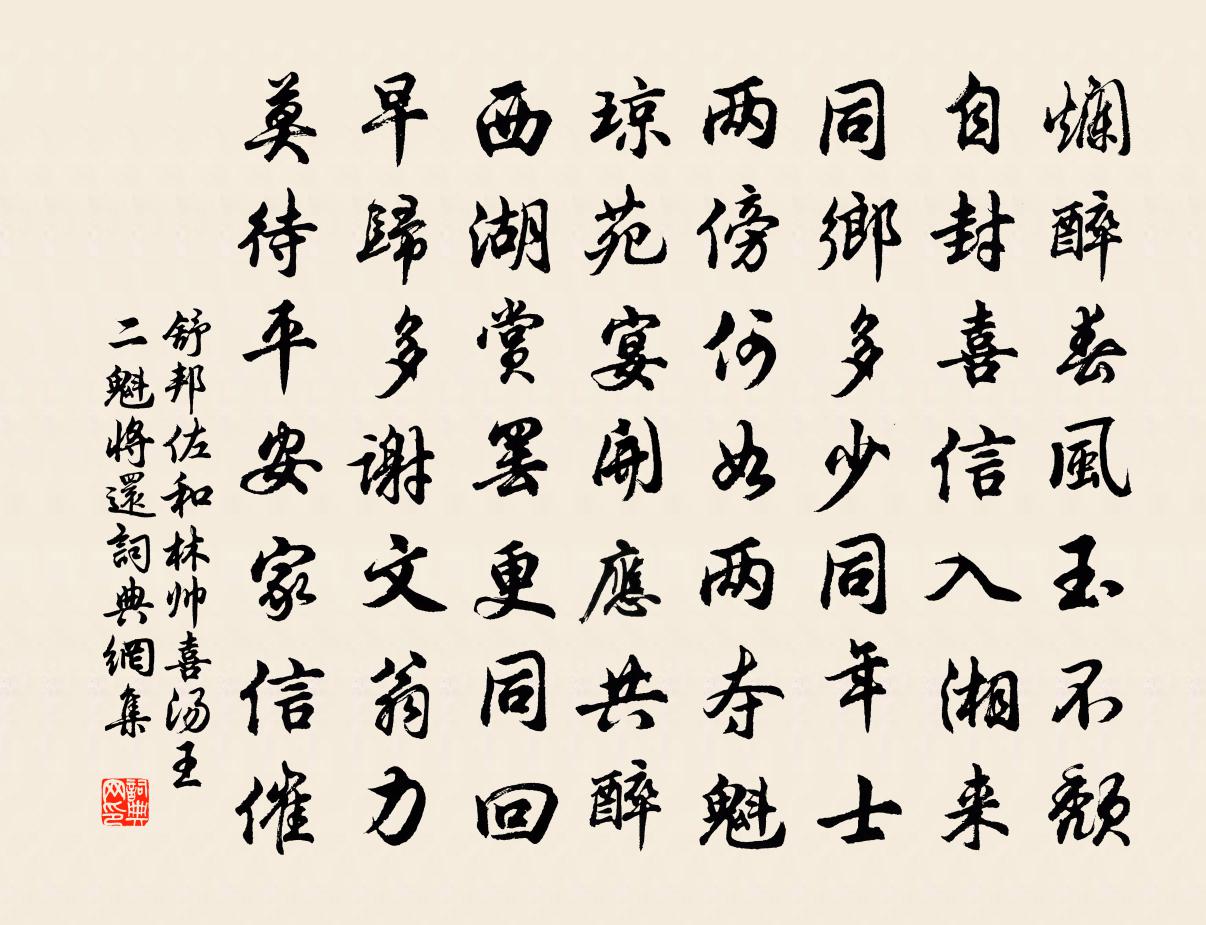 爛醉春風玉不頹
自封喜信入湘来
同鄉多少同年士
两傍何如两夺魁
琼苑宴開應共醉
西湖賞罢更同回
早歸多謝文翁力
莫待平安家信催
舒邦佐和林帅喜汤王
二魁將還詞典網集
詞典
网印